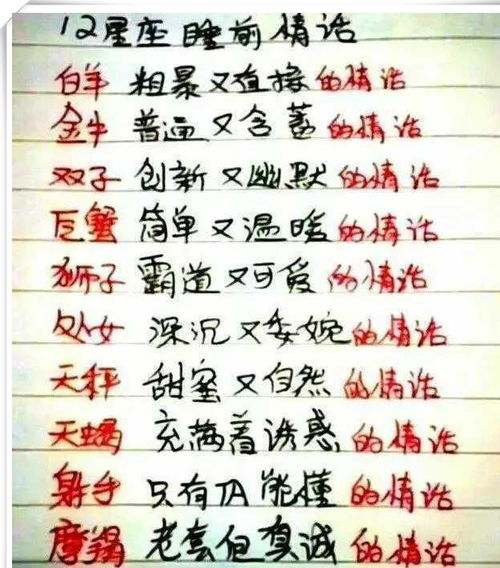 12星座睡前情话
白羊 粗暴又直接的情话
金牛 普通又含蓄的情话
双子 创新又幽默的情话
巨蟹 简单又温暖的情话
狮子 霸道又可爱的情话
处女 深沉又委婉的情话
天秤 甜蜜又自然的情话
天蝎 充满着诱惑的情话
射手 只有TA能懂的情话
摩羯 老套但真诚的情话